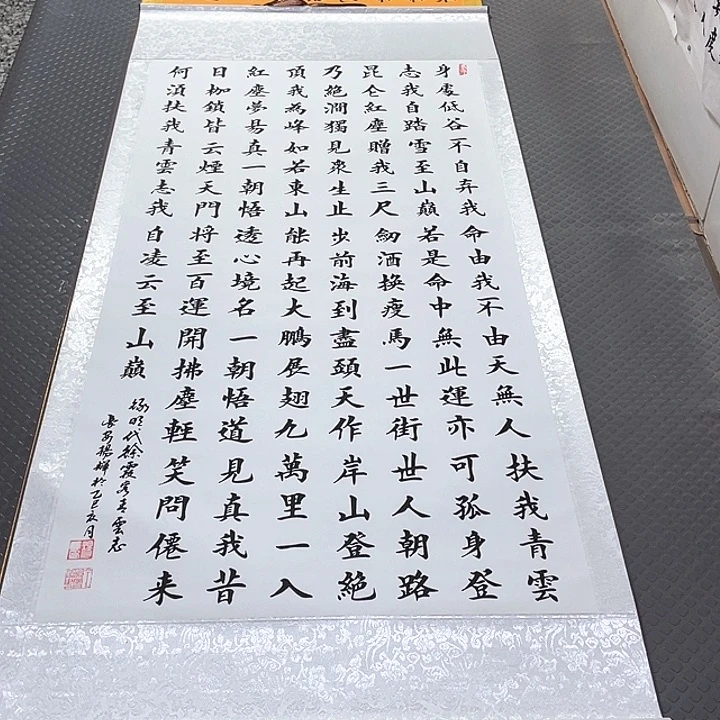 身處低谷不自弃我命由我不由天無人扶我青雲
志我自踏雪至山巔若是命中無此運亦可孤身登
昆仑紅塵贈我三尺紉酒換瘦馬一世街世人朝路
乃絕澗獨見衆生止步前海到盡頭天作岸山登絕
頂我為峰如若東山能再起大鵬展翅九萬里一入
紅塵夢易真一朝悟透心境名一朝悟道見真我昔
日枷鎖皆云煙天門將至百運開拂塵輕笑問僊来
何湏扶我青雲志我自凌云至山巔
録明代徐霞客青雲志
長安楊輝於乙巳秋月